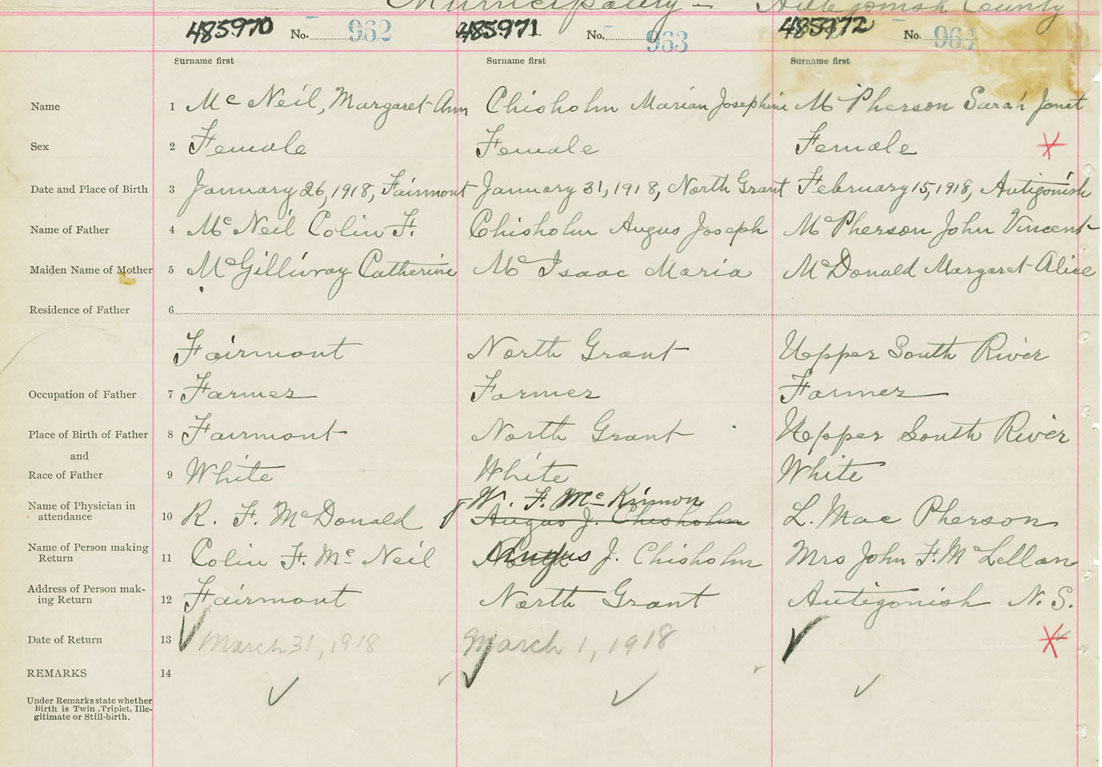 Municipality - Antigonish County
485970 No. 962 485971 No. 963 485972 No. 964
Surname first Surname first Surname first
Name 1 Mc Neil, Margaret Ann Chisholm Marian Josephine Mc Pherson Sarah Janet
Sex 2 Female Female Female
Date and Place of Birth 3 January 26, 1918, Fairmont January 31, 1918, North Grant February 15, 1918, Antigonish
Name of Father 4 McNeil Colin F. Chisholm Angus Joseph McPherson John Vincent
Maiden Name of Mother 5 McGillivray Catherine Mc Isaac Maria McDonald Margaret Alice
Residence of Father 6
Fairmont North Grant Upper South River
Occupation of Father 7 Farmer Farmer Farmer
Place of Birth of Father 8 Fairmont North Grant Upper South River
and
Race of Father 9 White White White
W. F. McKinnon
Name of Physician in
attendance 10 R. F. McDonald Angus J. Chisholm L. Mac Pherson
Name of Person making
Return 11 Colin F. Mc Neil Angus J. Chisholm Mrs John F. McLellan
Address of Person mak-
ing Return 12 Fairmont North Grant Antigonish N. S.
Date of Return 13 March 31, 1918 March 1, 1918
REMARKS 14
Under Remarks state whether
Birth is Twin, Triplet, Ille-
gitimate or Still-birth.